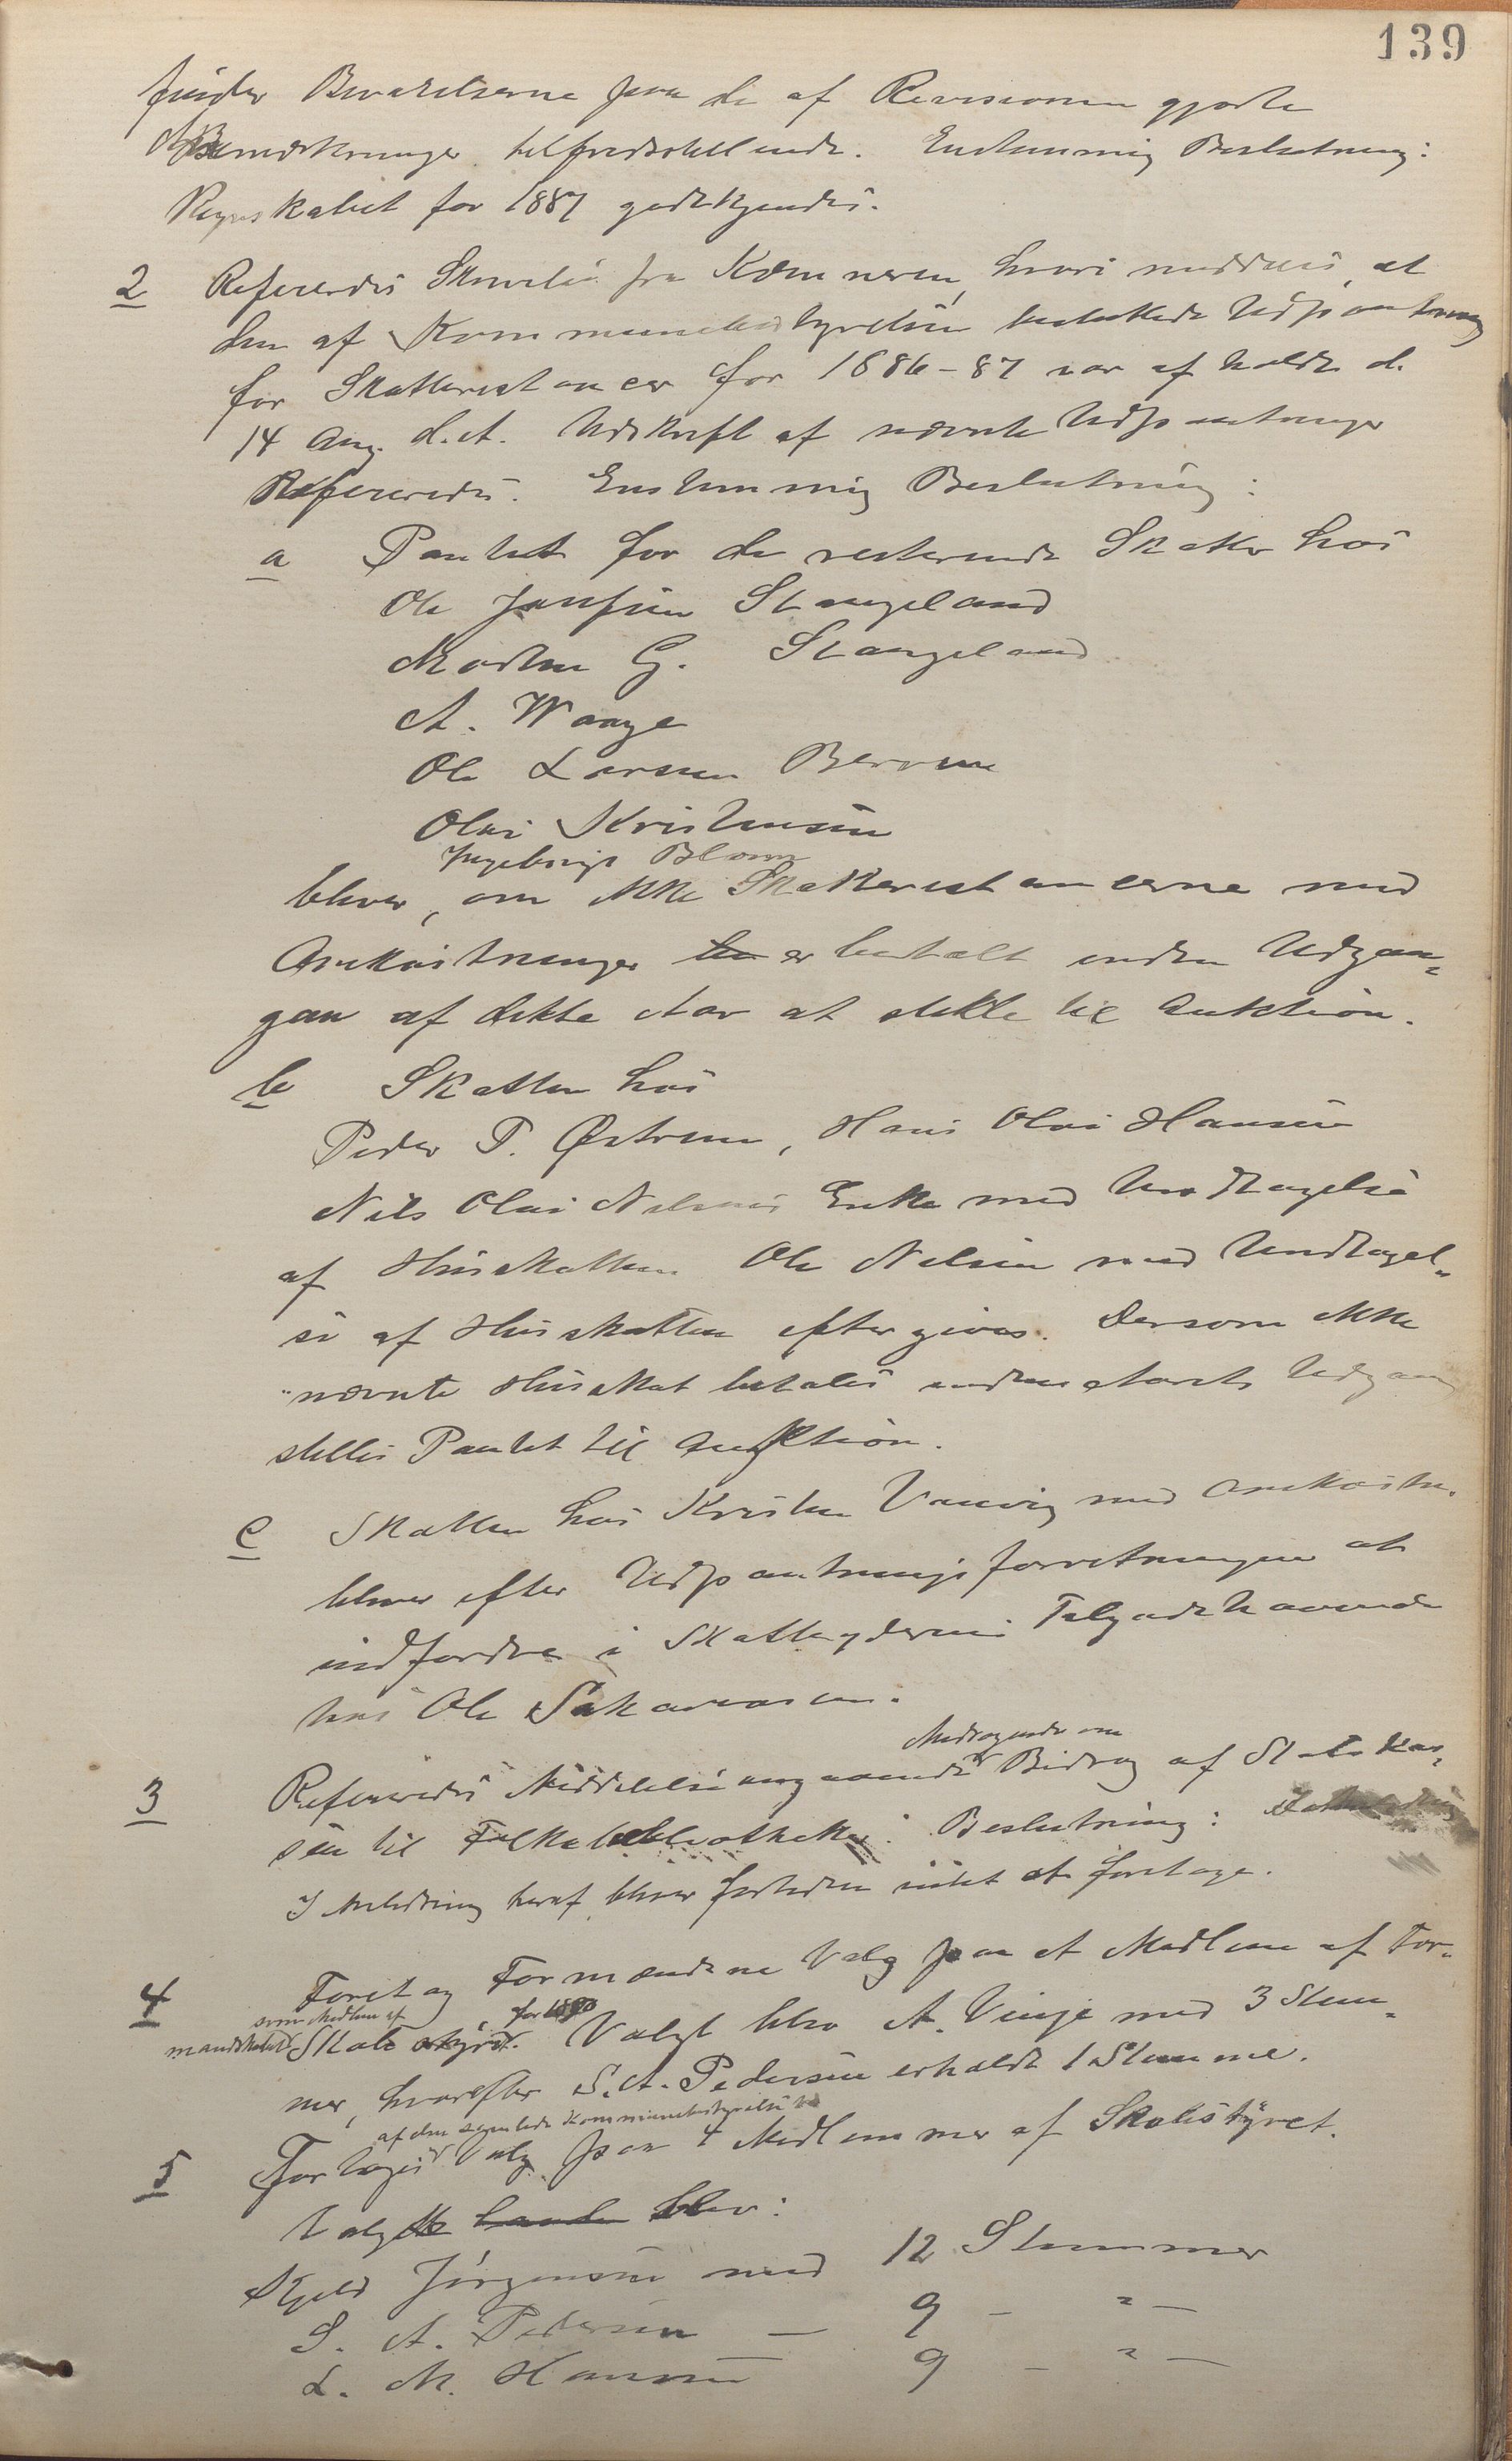 139
finder Besvarelserne paa de af Revisionen gjorte
Bemærkninger tilfredsstillende. Enstemmig Beslutning:
Regnskabet for 1887 godkjendes.
2 Refereredes Skrivelse fra Kæmneren, hvori meddeles, at
den af Kommunebestyrelsen besluttede Udpantning
for Skatterestancer for 1886-87 var afholdt d.
14 Aug. d.A. Udskrift af nævnte Udpantninger
Refereredes. Enstemmig Beslutning:
a Pantet for de resterende Skatter hos
Ole Jansen Stangeland
Morten G. Stangeland
A. Waage
Ole Larsen
Olai Kristensen
Ingebrigt
bliver, om ikke Skatterestancerne med
Omkostninger er betalt inden Udgan-
gen af dette Aar at stille til Auktion.
b Skatten hos
Peder P. Østrem, Hans Olai Hansen
Nils Olai Nilsens Enke med Undtagelse
af Husskatten Ole Nilsen med Undtagel-
se af Husskatten eftergives. Dersom ikke
nævnte Husskat betales inden Aarets Udgang
stilles Pantet til Auktion.
c Skatten hos Kristen Vaavig med Omkostn.
bliver efter Udpantningsforretningen at
indfordre i Skatteyderens Tilgodehavende
hos Ole Sakariasen.
Andragende om
3 Refereredes Meddelelse angaaende Bidrag af Statskas-
sen til Folkebibliotheker. Beslutning:
I Anledning heraf bliver fortiden intet at foretage.
4 Foretog Formændene Valg paa et Medlem af For-
som Medlem af for 1890
mandskabet Skolestyret. Valgt blev A. Vinje med 3 Stem-
mer, hvorefter S.A. Pedersen erholdt 1 Stemme.
af den samlede Kommunebestyrelse
5 Foretoges Valg paa 4 Medlemmer af Skolestyret.
Valgte blev:
Kjeld Jörgensen med 12 Stemmer
S. A. Pedersen — 9 — " —
L. M. Hansen — 9 — " —